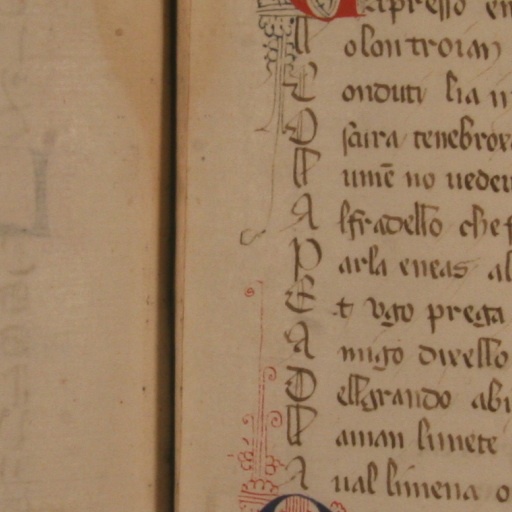 apresso en
N olontroian
C onduti lia
O scura tenebros
F ume no ueder
A lfradello che
P arla eneas al
E t Vgo prega
A migo diuello
D ellgrando abi
F aman limete
A ual limena